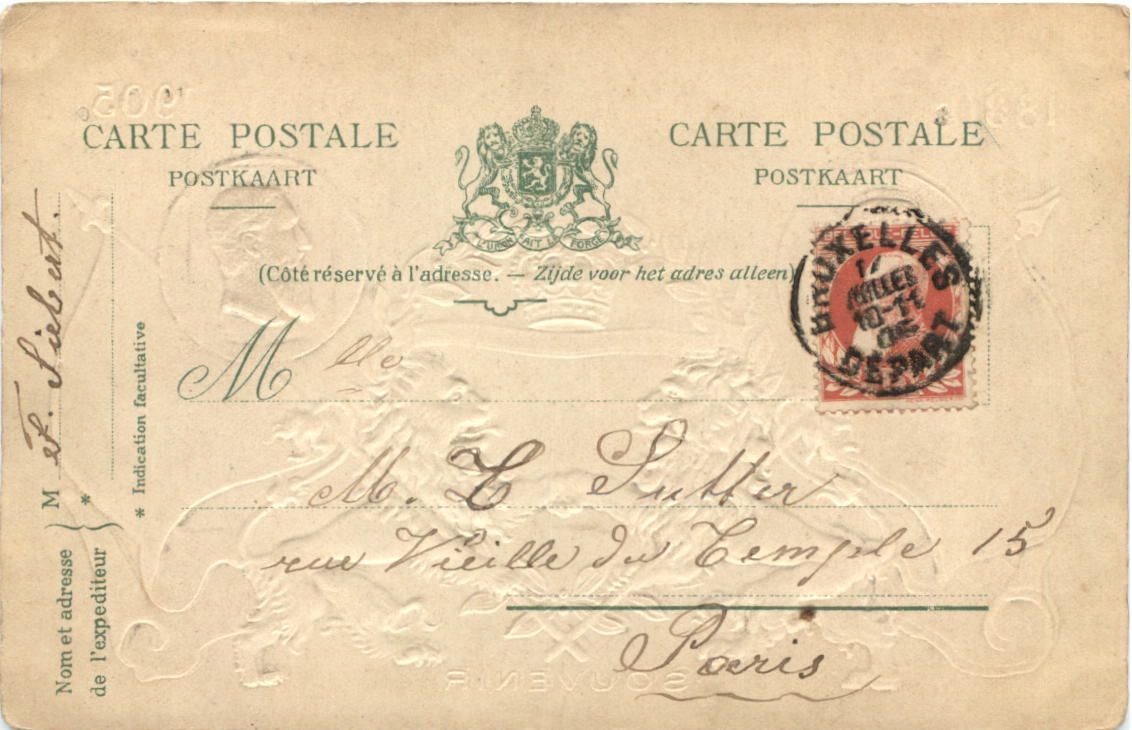 CARTE POSTALE
POSTKAART
CARTE POSTALE
POSTKAART
L'UNION FAIT LA FORCE
(Côté réservé à l'adresse. — Zijde voor het adres alleen)
BRUXELLES
10-11
DEPART
Mlle
M. T Sutter
rue Vieille du Temple 15
Paris
Nom et adresse
de l'expediteur
M F. Siebert.
*
* Indication facultative
1905
SOUVENIR